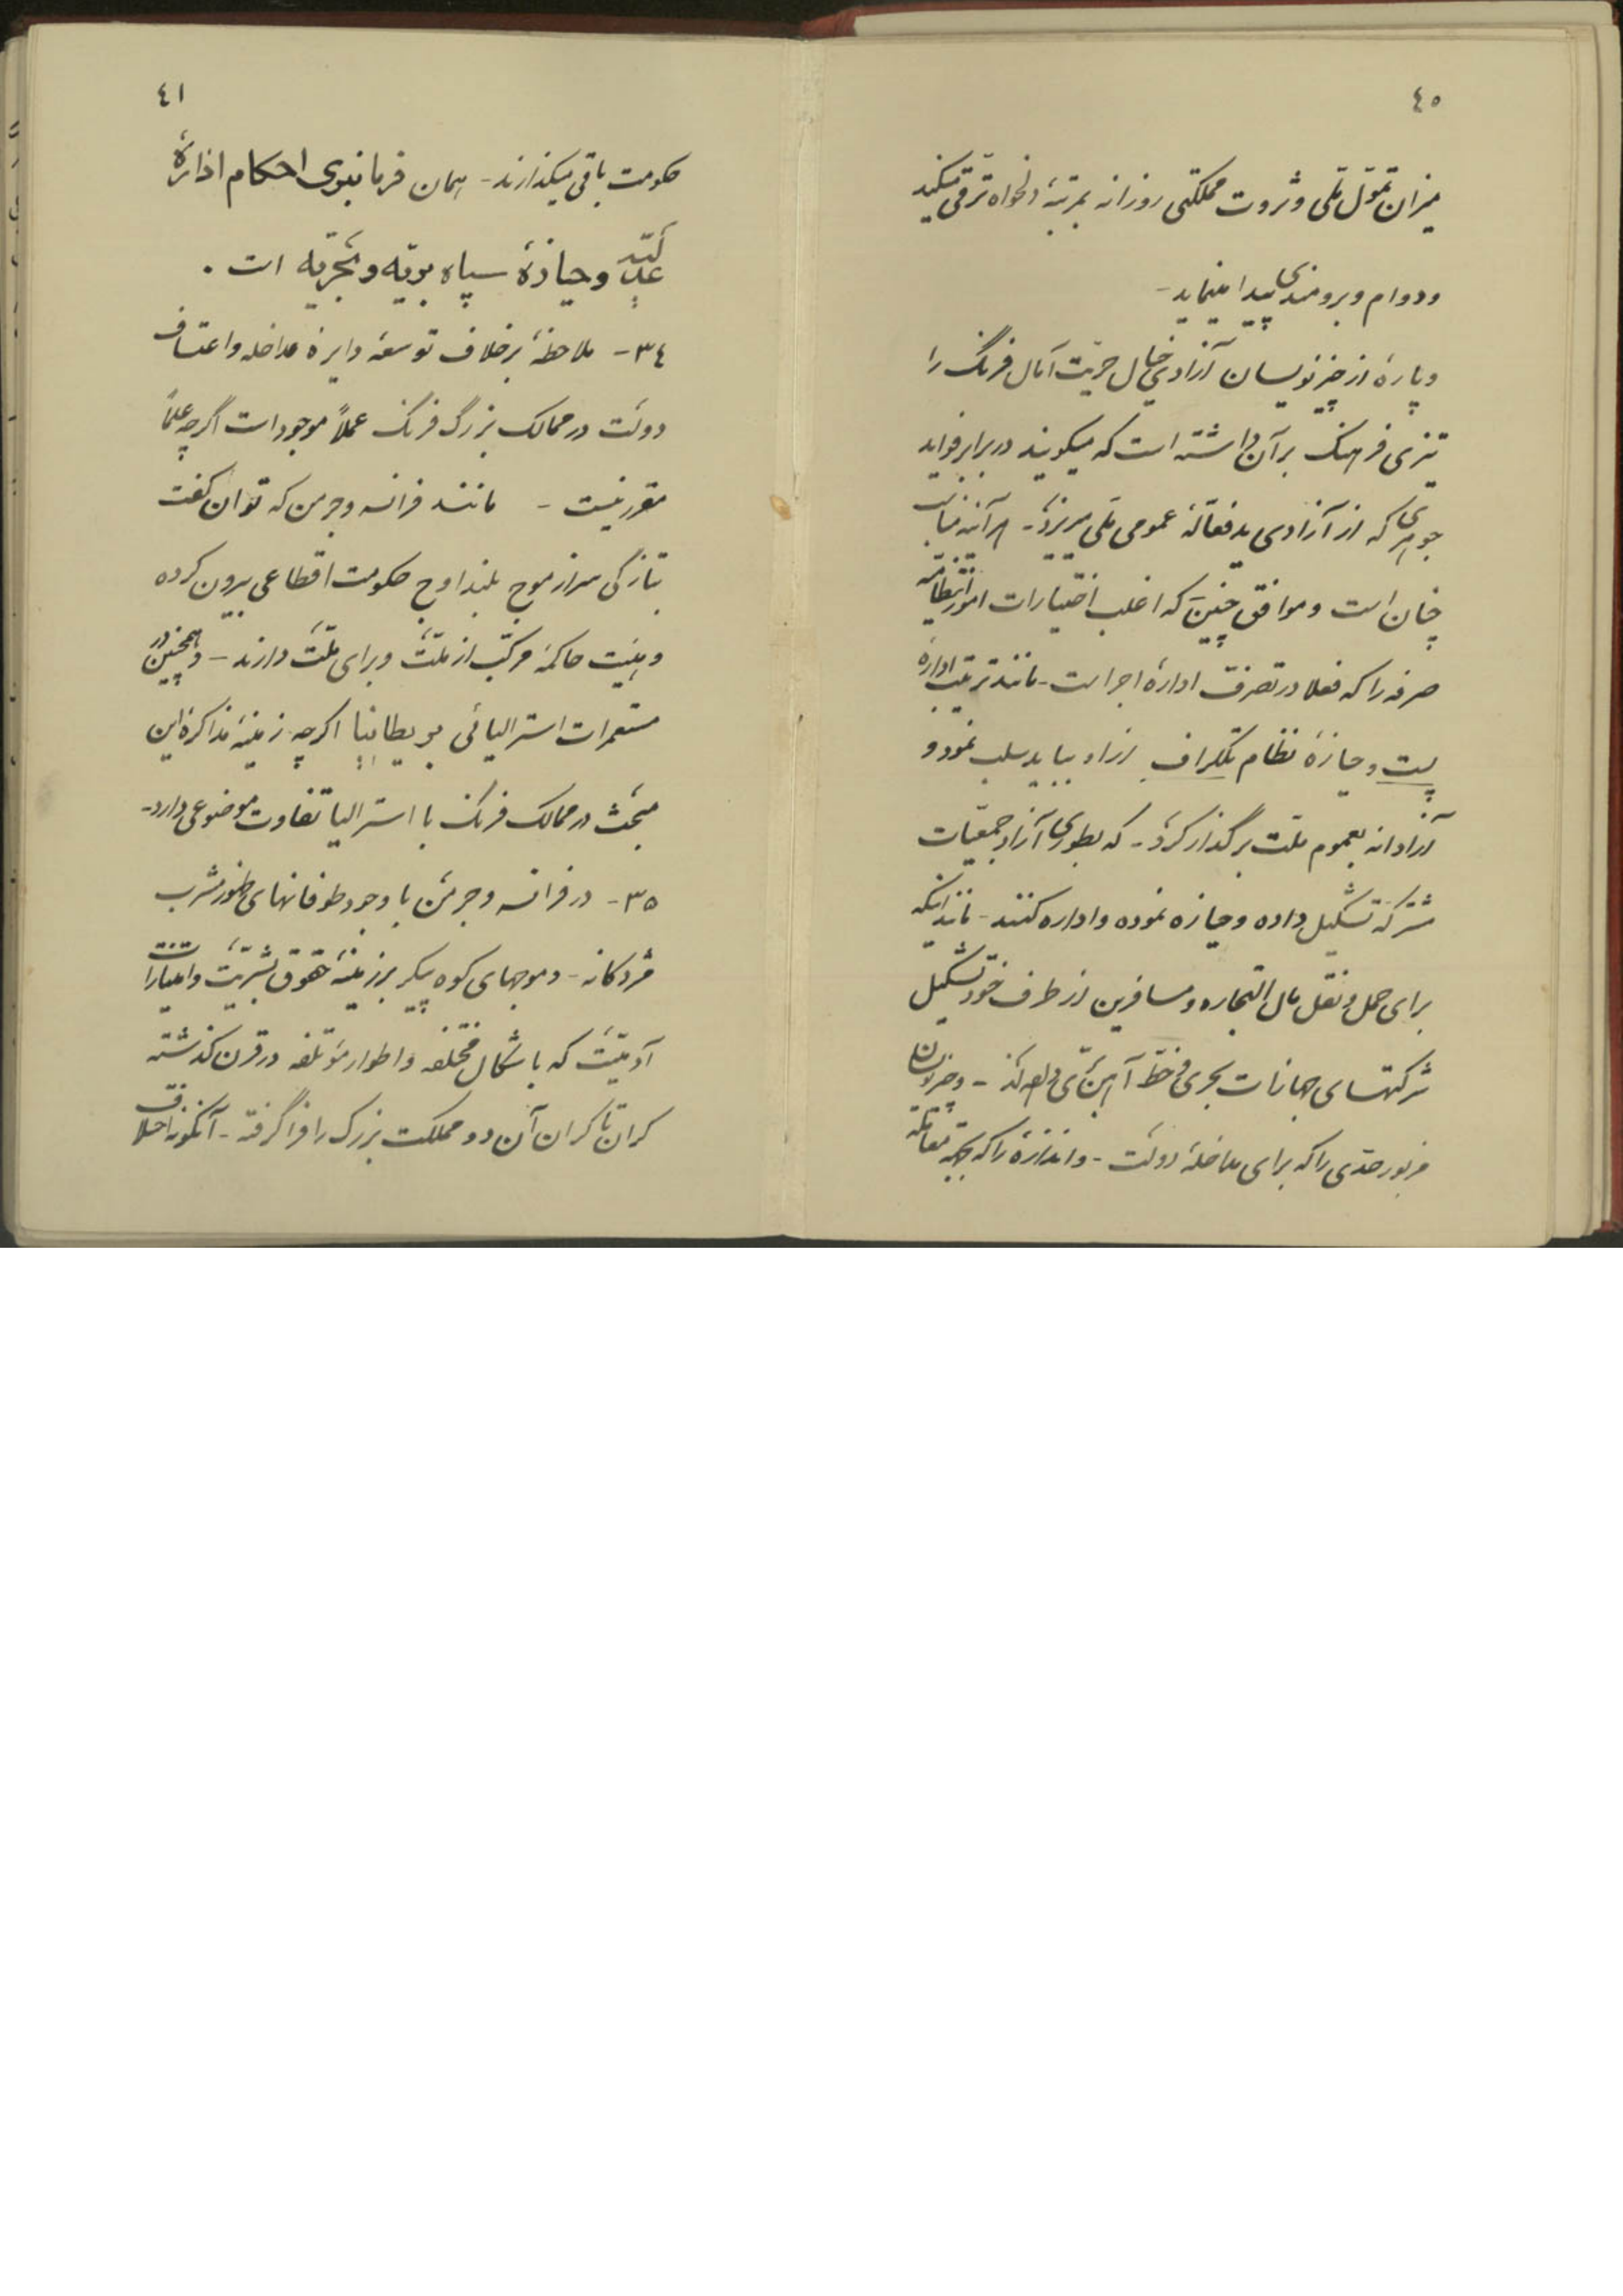 ٤٠
میزان تموّل ملی و ثروت مملکتی روزانه بمرتبهٔ دلخواه ترقی میکند
و دوام و برومندی پیدا مینماید -
و پارهٔ از چیز نویسان آزادی خیال حریّت آمال فرنگ را
تیزی فرهنگ بر آن داشته است که میگویند در برابر فواید
جوهری که از آزادی ید فعّالهٔ عمومی ملی میریزد - هر آینه مناسب
چنان است و موافق چنین که اغلب اختیارات امور انتظامیه
صرفه را که فعلا در تصرف ادارهٔ اجراست - مانند ترتیب ادارهٔ
پست و حیازهٔ نظام تلگراف ازاو بباید سلب نمود و
آزادانه بعموم ملت برگذار کرد - که بطوری آزاد جمعیّات
مشترکه تشکیل داده و حیازه نموده و اداره کنند - مانند اینکه
برای حمل و نقل مال التجاره و مسافرین از طرف خود تشکیل
شرکتهای جهازات بحری و خط آهن برّی کنند - و چیز نویسان
مزبور حدی را که برای مداخلهٔ دولت - و اندازهٔ را که بجهة
٤١
حکومت باقی میگذارند - همان فرمانبوی احکام ادارهٔ
عدلیّه و حیازهٔ سپاه بریّه و بحریّه است .
٣٤ - ملاحظهٔ برخلاف توسعهٔ دایرهٔ مداخله و اعتساف
دولت در ممالک بزرگ فرنگ عملاً موجود است اگرچه علماً
مقرر نیست - مانند فرانسه و جرمن که توان گفت
بتازگی سر از موج بلند اوج حکومت اقطاعی بیرون کرده
و هیئت حاکمهٔ مرکّب از ملّت و برای ملّت دارند - و همچنین در
مستعمرات استرالیائی بریطانیا اگرچه زمینهٔ مذاکرهٔ این
مبحث در ممالک فرنگ با استرالیا تفاوت موضوعی دارد -
٣٥ - در فرانسه و جرمن با وجود طوفانهای طور مشرب
مزدکانه - و موجهای کوه پیکر بر زمینهٔ حقوق بشریّت و امتیازات
آدمیّت که باشکال مختلفه و اطوار مؤتلفه در قرن گذشته
کران تا کران آن دو مملکت بزرگ را فرا گرفته - آنگونه اختلاف